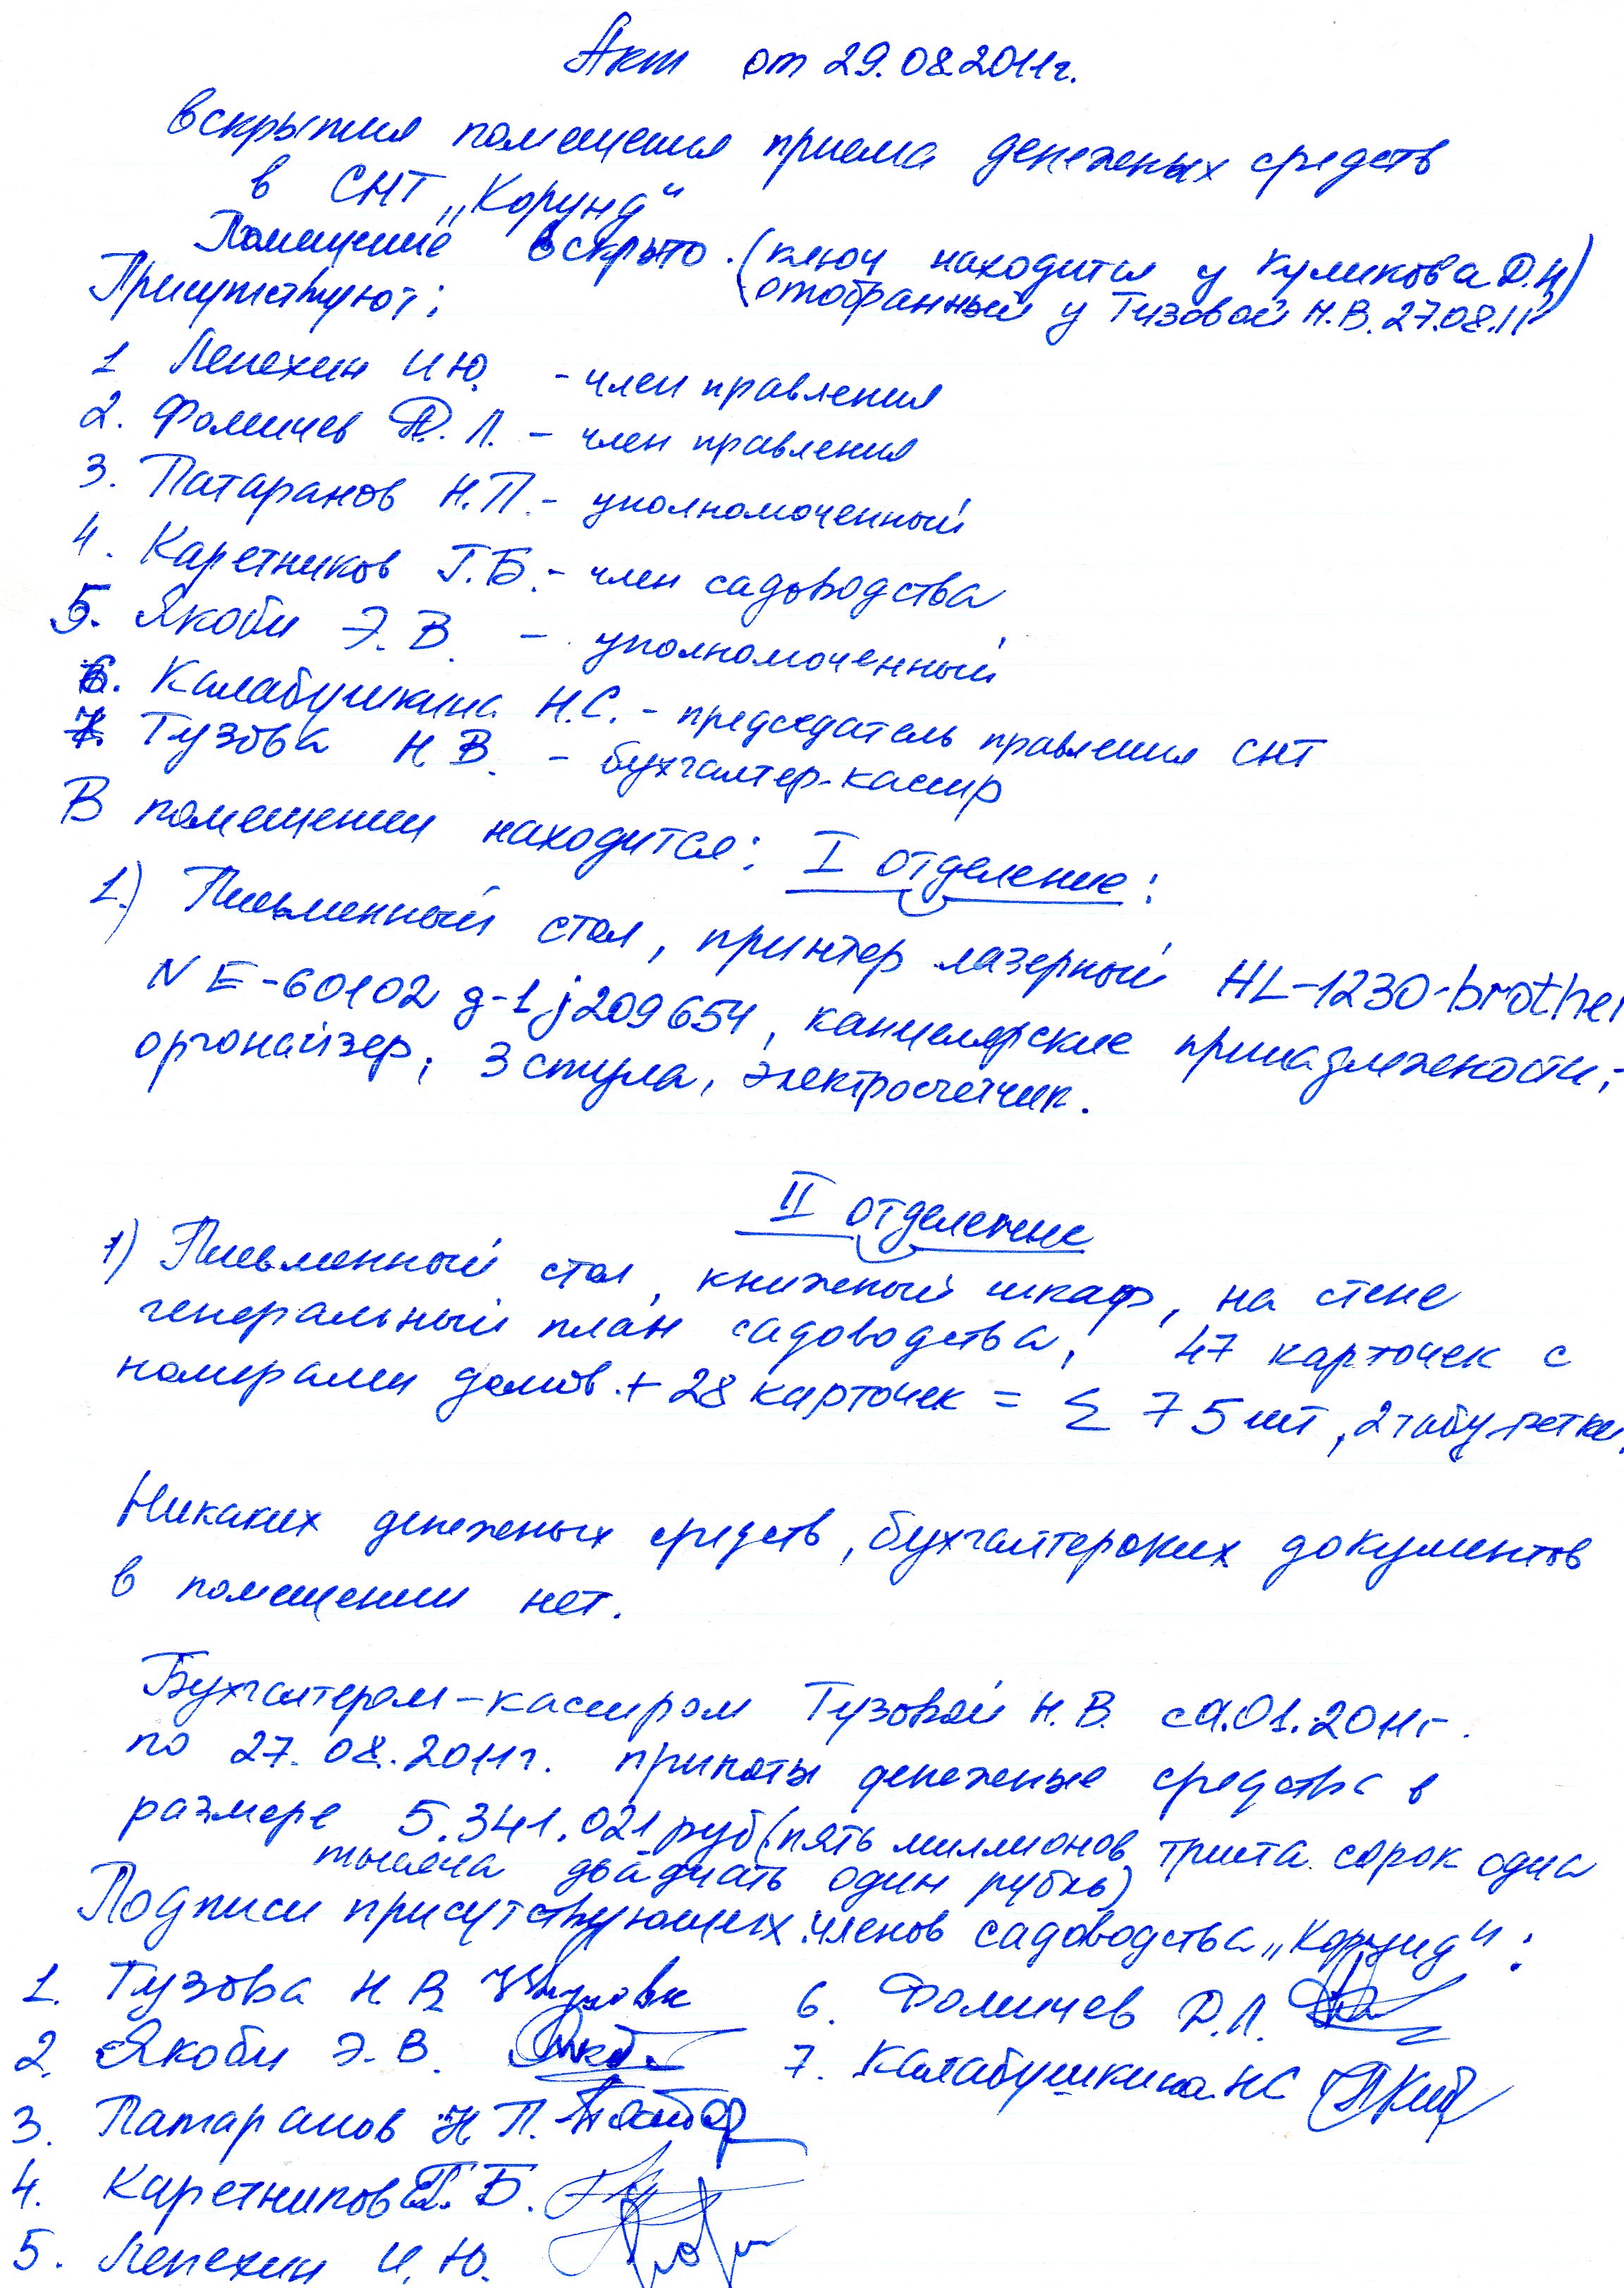 Акт от 29.08.2011г.
вскрытия помещения приема денежных средств
в СНТ „Корунд“
Помещение вскрыто. (ключ находится у Куликова Д.Н)
(отобранный у Тузовой Н.В. 27.08.11)
Присутствуют:
1 Лепехин И Ю. - член правления
2. Фомичев Д. Л. - член правления
3. Патаранов Н.П. - уполномоченный
4. Каретников Г.Б. - член садоводства
5. Якоби Э. В. - уполномоченный
6. Калабушкина Н.С. - председатель правления СНТ
7. Тузова Н В. - бухгалтер-кассир
В помещении находится: I отделение:
1.) Письменный стол, принтер лазерный HL-1230-brother
N E-60102 g-1j209654, канцелярские принадлежности,
органайзер, 3 стула, электросчетчик.
II отделение
1) Письменный стол, книжный шкаф, на стене
генеральный план садоводства, 47 карточек с
номерами домов + 28 карточек = Σ 75 шт, 2 табуретки.
Никаких денежных средств, бухгалтерских документов
в помещении нет.
Бухгалтером-кассиром Тузовой Н.В. с 01.2011г.
по 27.08.2011г. приняты денежные средства в
размере 5.341.021 руб (пять миллионов триста сорок одна
тысяча двадцать один рубль)
Подписи присутствующих членов садоводства „Корунд“:
1. Тузова Н. В.
2. Якоби Э. В.
3. Патаранов Н П.
4. Каретников Г. Б.
5. Лепехин И. Ю.
6. Фомичев Д. Л.
7. Калабушкина НС